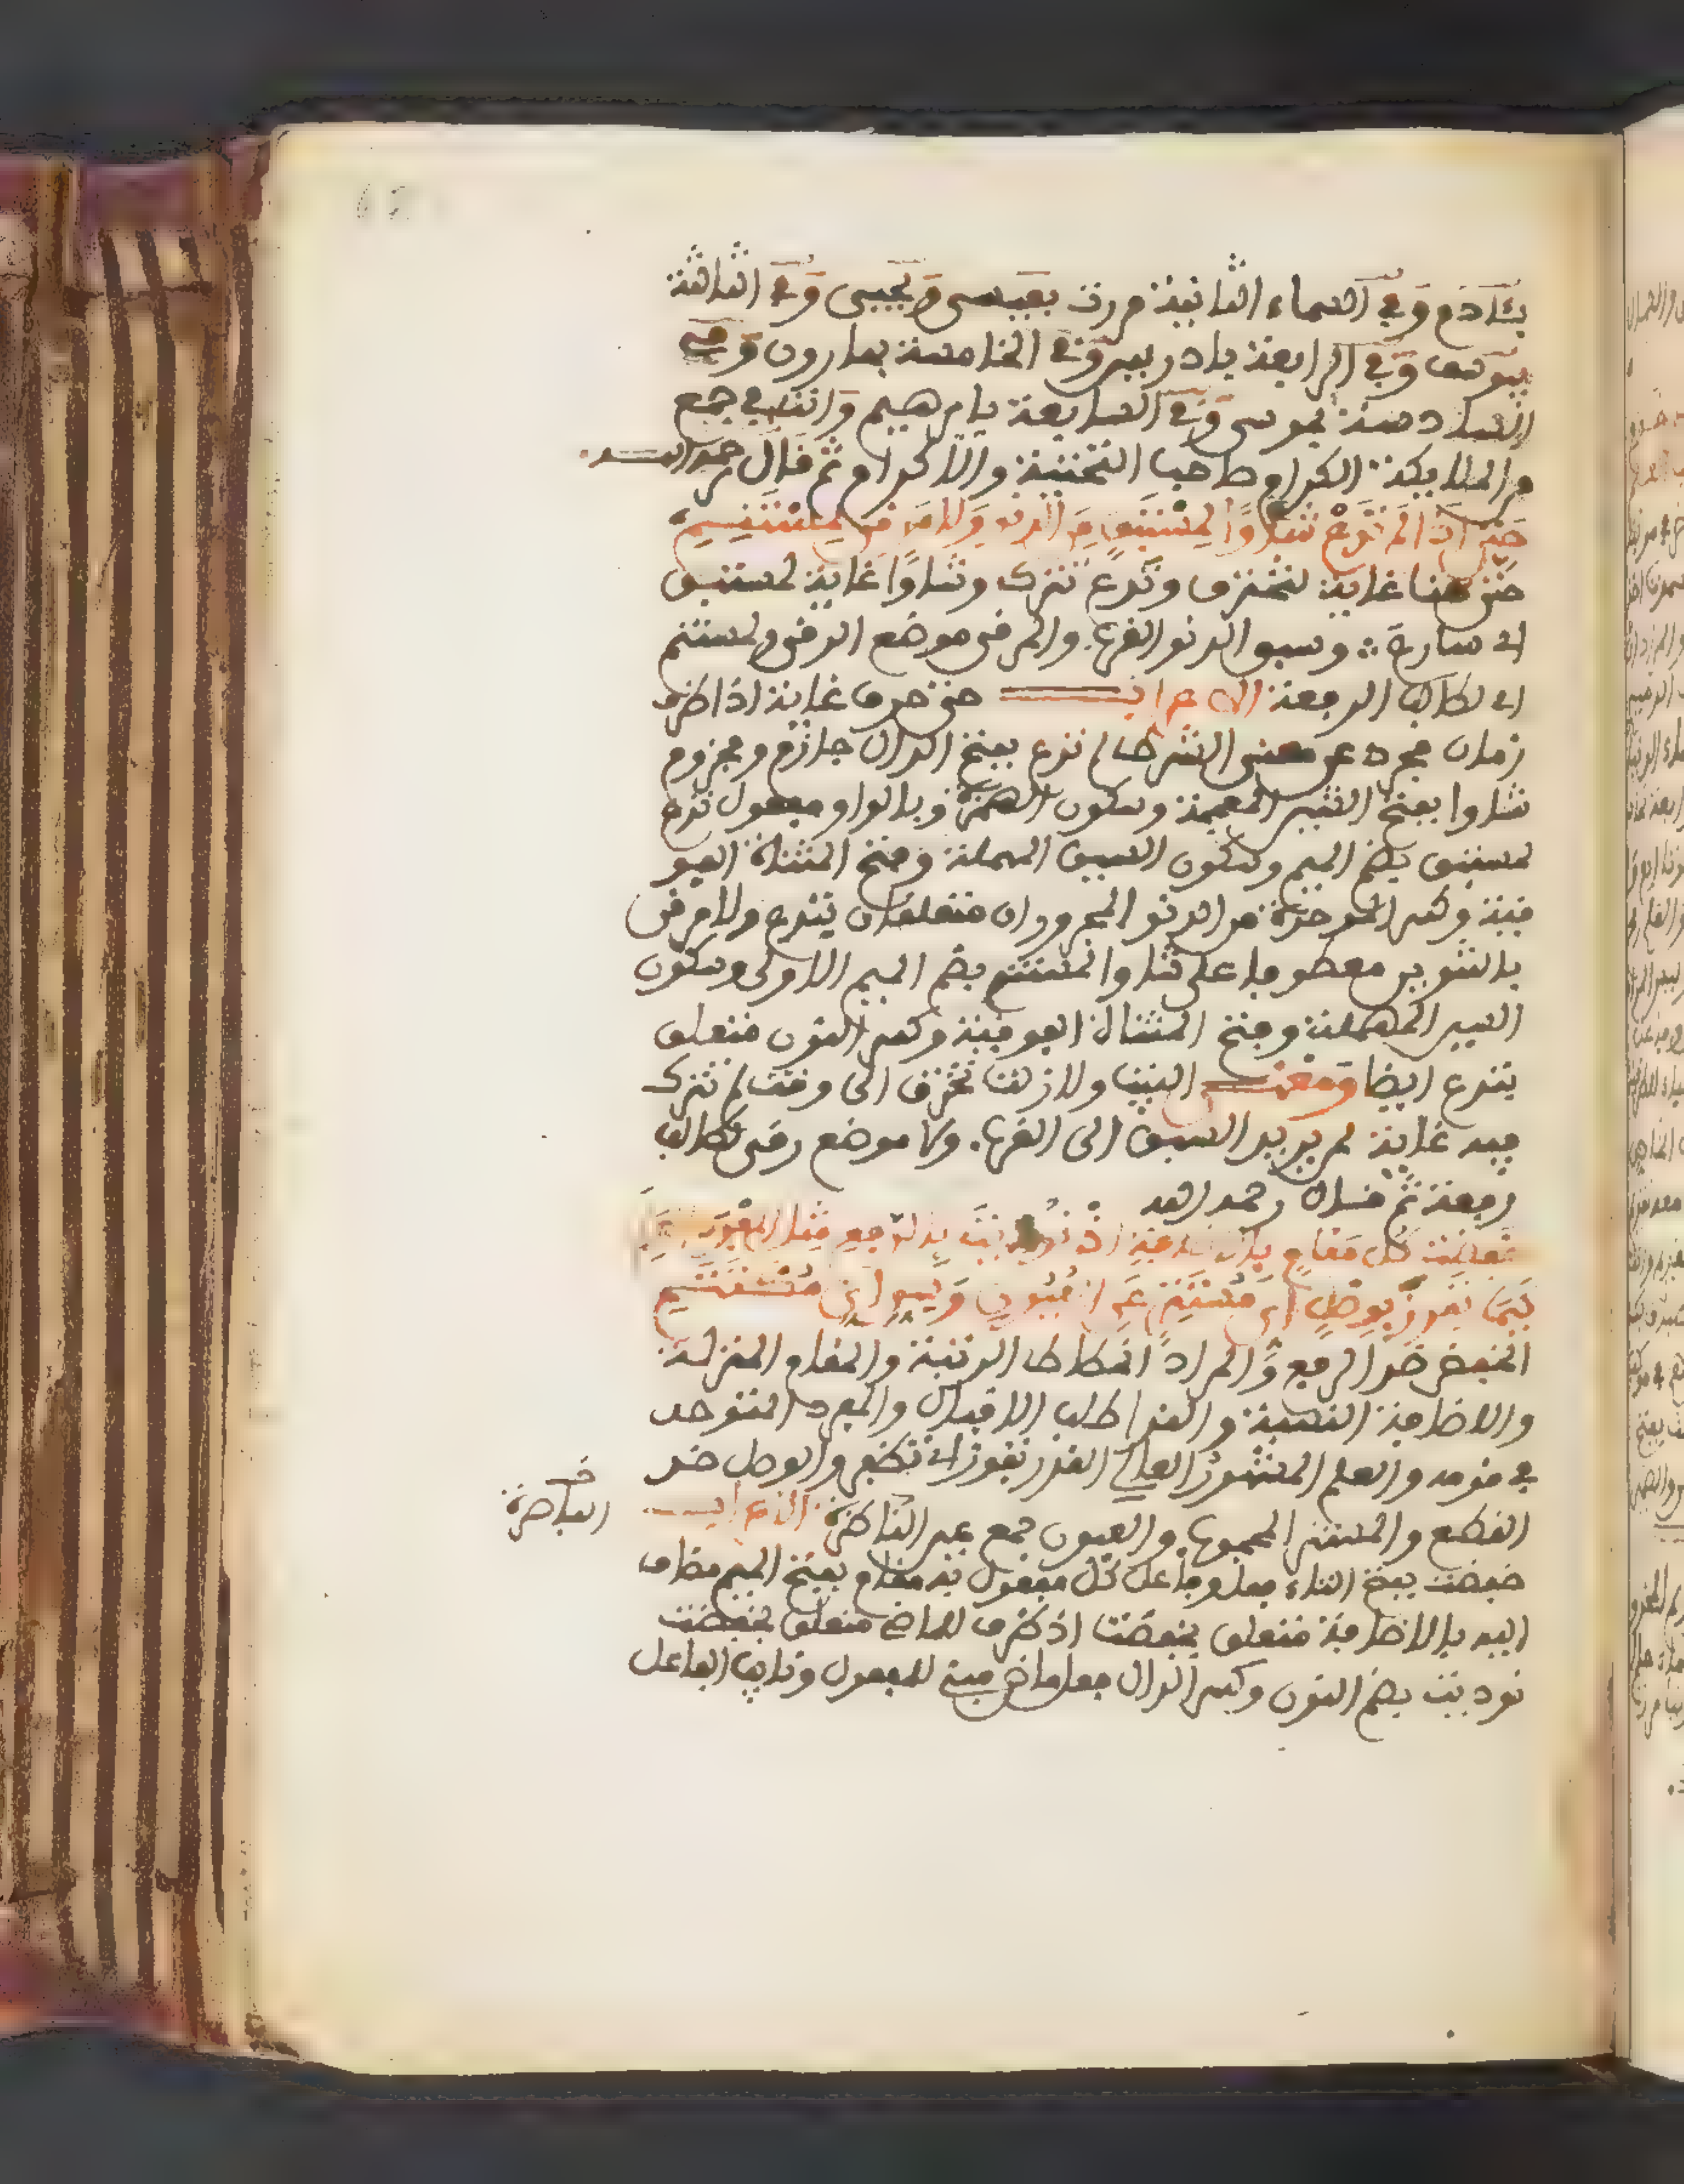 بئادم وفي السماء الثانية مررت بعيسى ويحيى وفي الثالثة
بيوسف وفي الرابعة بادريس وفي الخامسة بهارون وفي
السادسة بموسى وفي السابعة بابرهيم وانت في جمع
من الملايكة الكرام صاحب التحية والاكرام ثم قال رحمه الله
حتى اذا لم تدع شأوا لمستبق من الدنو ولا مرقى لمستنم
حتى هنا غاية لتخترق وتدع تترك وشاوا غاية لمستبق
اي سارع وسبق الدنو القرب والمرقى موضع الرقي والمستنم
اي طالب الرفعة الاعراب حتى حرف غاية اذا ظرف
زمان مجرد عن معنى الشرط لم تدع بفتح الدال جازم ومجزوم
شاوا بفتح الشين المعجمة وسكون الهمزة وبالواو مفعول تدع
لمستبق بضم الميم وسكون السين المهملة وفتح المثناة الفو
قية وكسر الموحدة من الدنو المجروران متعلقان بتدع ولا مرقى
بالتنوين معطوفا على شاوا لمستنم بضم الميم الاولى وسكون
السين المهملة وفتح المثناة الفوقية وكسر النون متعلق
بتدع ايضا ومعنى البيت ولازلت تخترق الى وقت لم تترك
فيه غاية لمن يريد السبق الى القرب ولا موضع رقى لطالب
رفعة ثم قال رحمه الله
خفضت كل مقام بالاضافة اذ نوديت بالرفع مثل المفرد العلم
كيما تفوز بوصل اي مستتر عن العيون وسر اي مكتتم
الخفض ضد الرفع والمراد انحطاط الرتبة والمقام المنزلة
والاضافة النسبة والندا طلب الاقبال والمفرد المتوحد
في قومه والعلم المشهور العالي القدر تفوز اي تظفر والوصل ضد
القطع والمستتر المحجوب والعيون جمع عين الناظرة الاعراب
الباصرة
خفضت بفتح التاء فعل وفاعل كل مفعول به مقام بفتح الميم مضاف
اليه بالاضافة متعلق بخفضت اذ ظرف للماضي متعلق بخفضت
نوديت بضم النون وكسر الدال فعل ماض مبني للمفعول ونايب الفاعل